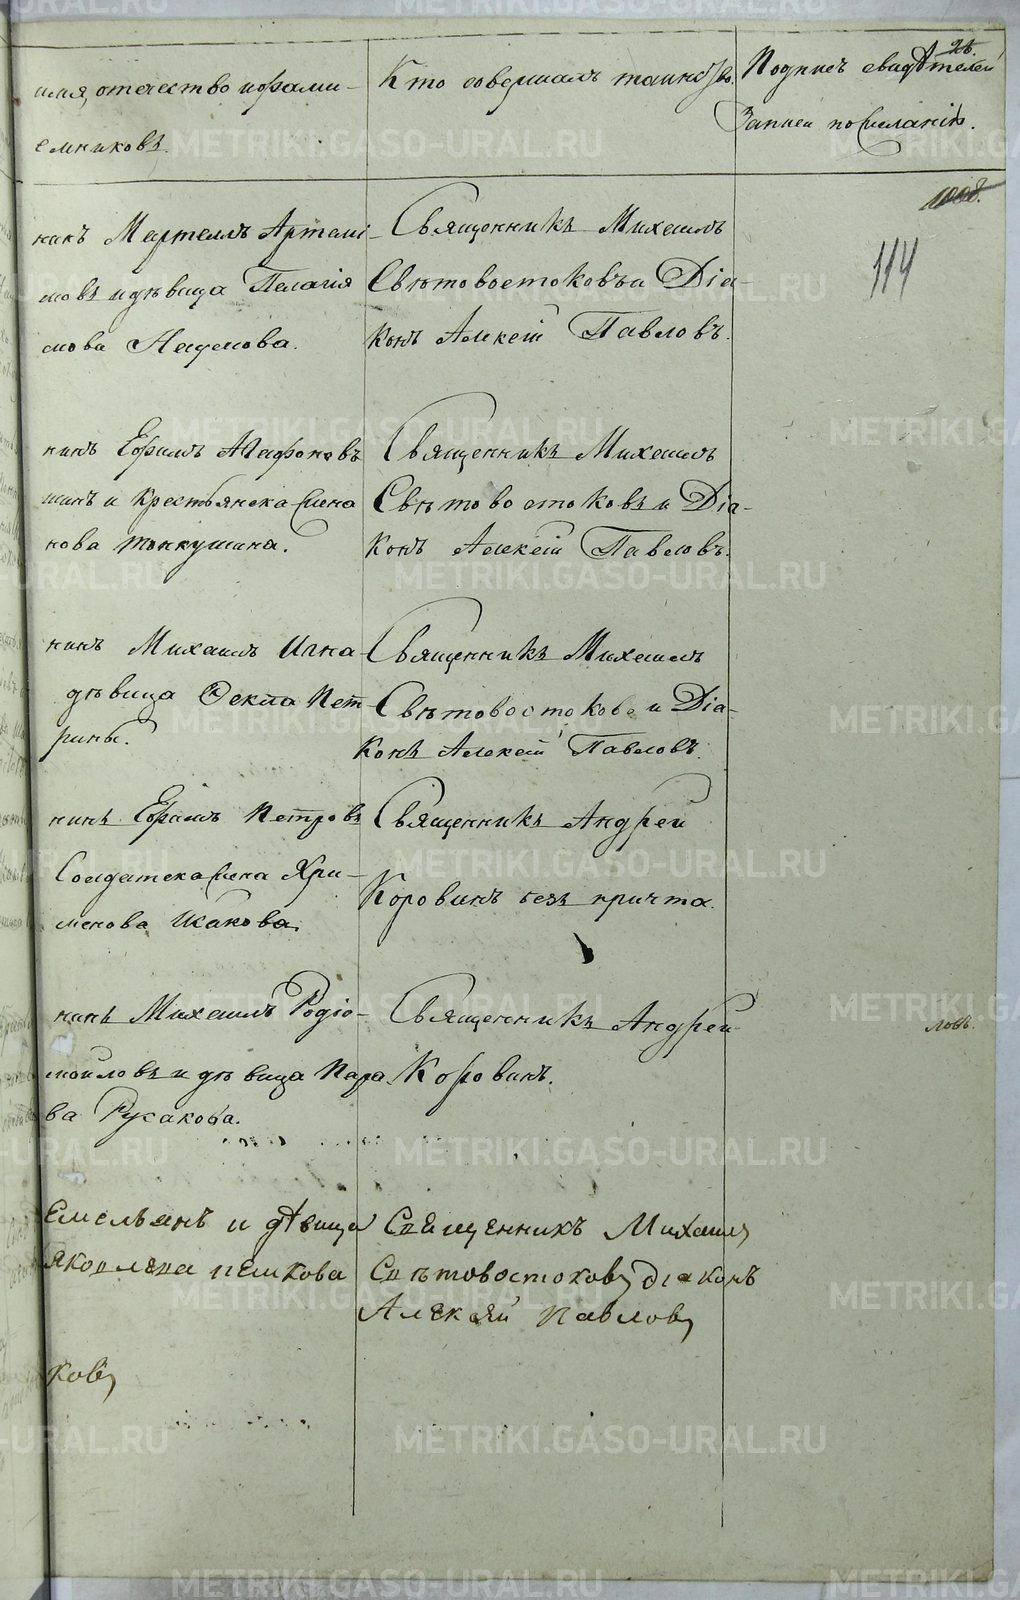 имя, отечество и фами-
емниковъ.
Кто совершалъ таинство.
Подпись свидѣтелей
Записи по желанію.
114
никъ Мартемъ Артамо-
мовъ и дѣвица Пелагія
мова Наумова.
Священникъ Михаилъ
Свѣтовостоковъ и Діа-
конъ Алексѣй Павловъ.
нинъ Ефимъ Агафоновъ
шинъ и Крестьянска жена
нова Тонкушина.
Священникъ Михаилъ
Свѣтовостоковъ и Діа-
конъ Алексѣй Павловъ.
нинъ Михаилъ Игна-
дѣвица Фекла Пет-
рины.
Священникъ Михаилъ
Свѣтовостоковъ и Діа-
конъ Алексѣй Павловъ.
нинъ Ефимъ Петровъ
Солдатска жена Хри-
менова Исакова.
Священникъ Андрей
Коровинъ безъ причта.
нинъ Михаилъ Родіо-
мойловъ и дѣвица Пара
ва Русакова.
Священникъ Андрей
Коровинъ.
Емельянъ и дѣвица
Яковлева Пешкова
ковъ
Священникъ Михаилъ
Свѣтовостоковъ діаконъ
Алексѣй Павловъ
METRIKI.GASO-URAL.RU